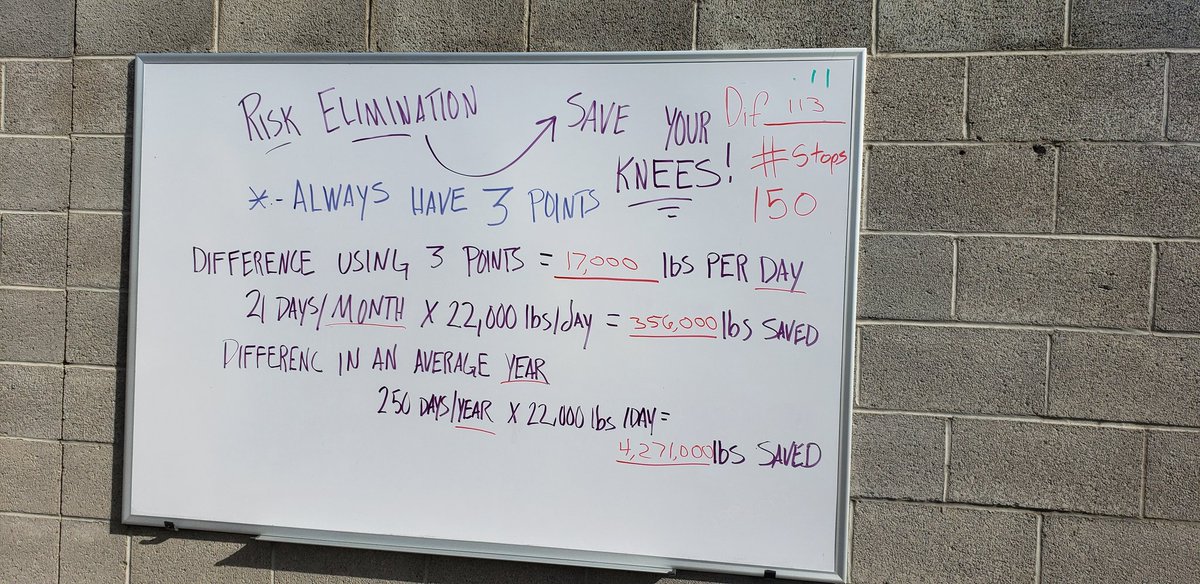 RISK ELIMINATION SAVE YOUR KNEES!
Dif 113
#Stops
150
*- ALWAYS HAVE 3 POINTS
DIFFERENCE USING 3 POINTS = 17,000 lbs PER DAY
21 DAYS/MONTH X 22,000 lbs/day = 356,000 lbs SAVED
DIFFERENC IN AN AVERAGE YEAR
250 DAYS/YEAR X 22,000 lbs /DAY =
4,271,000 lbs SAVED